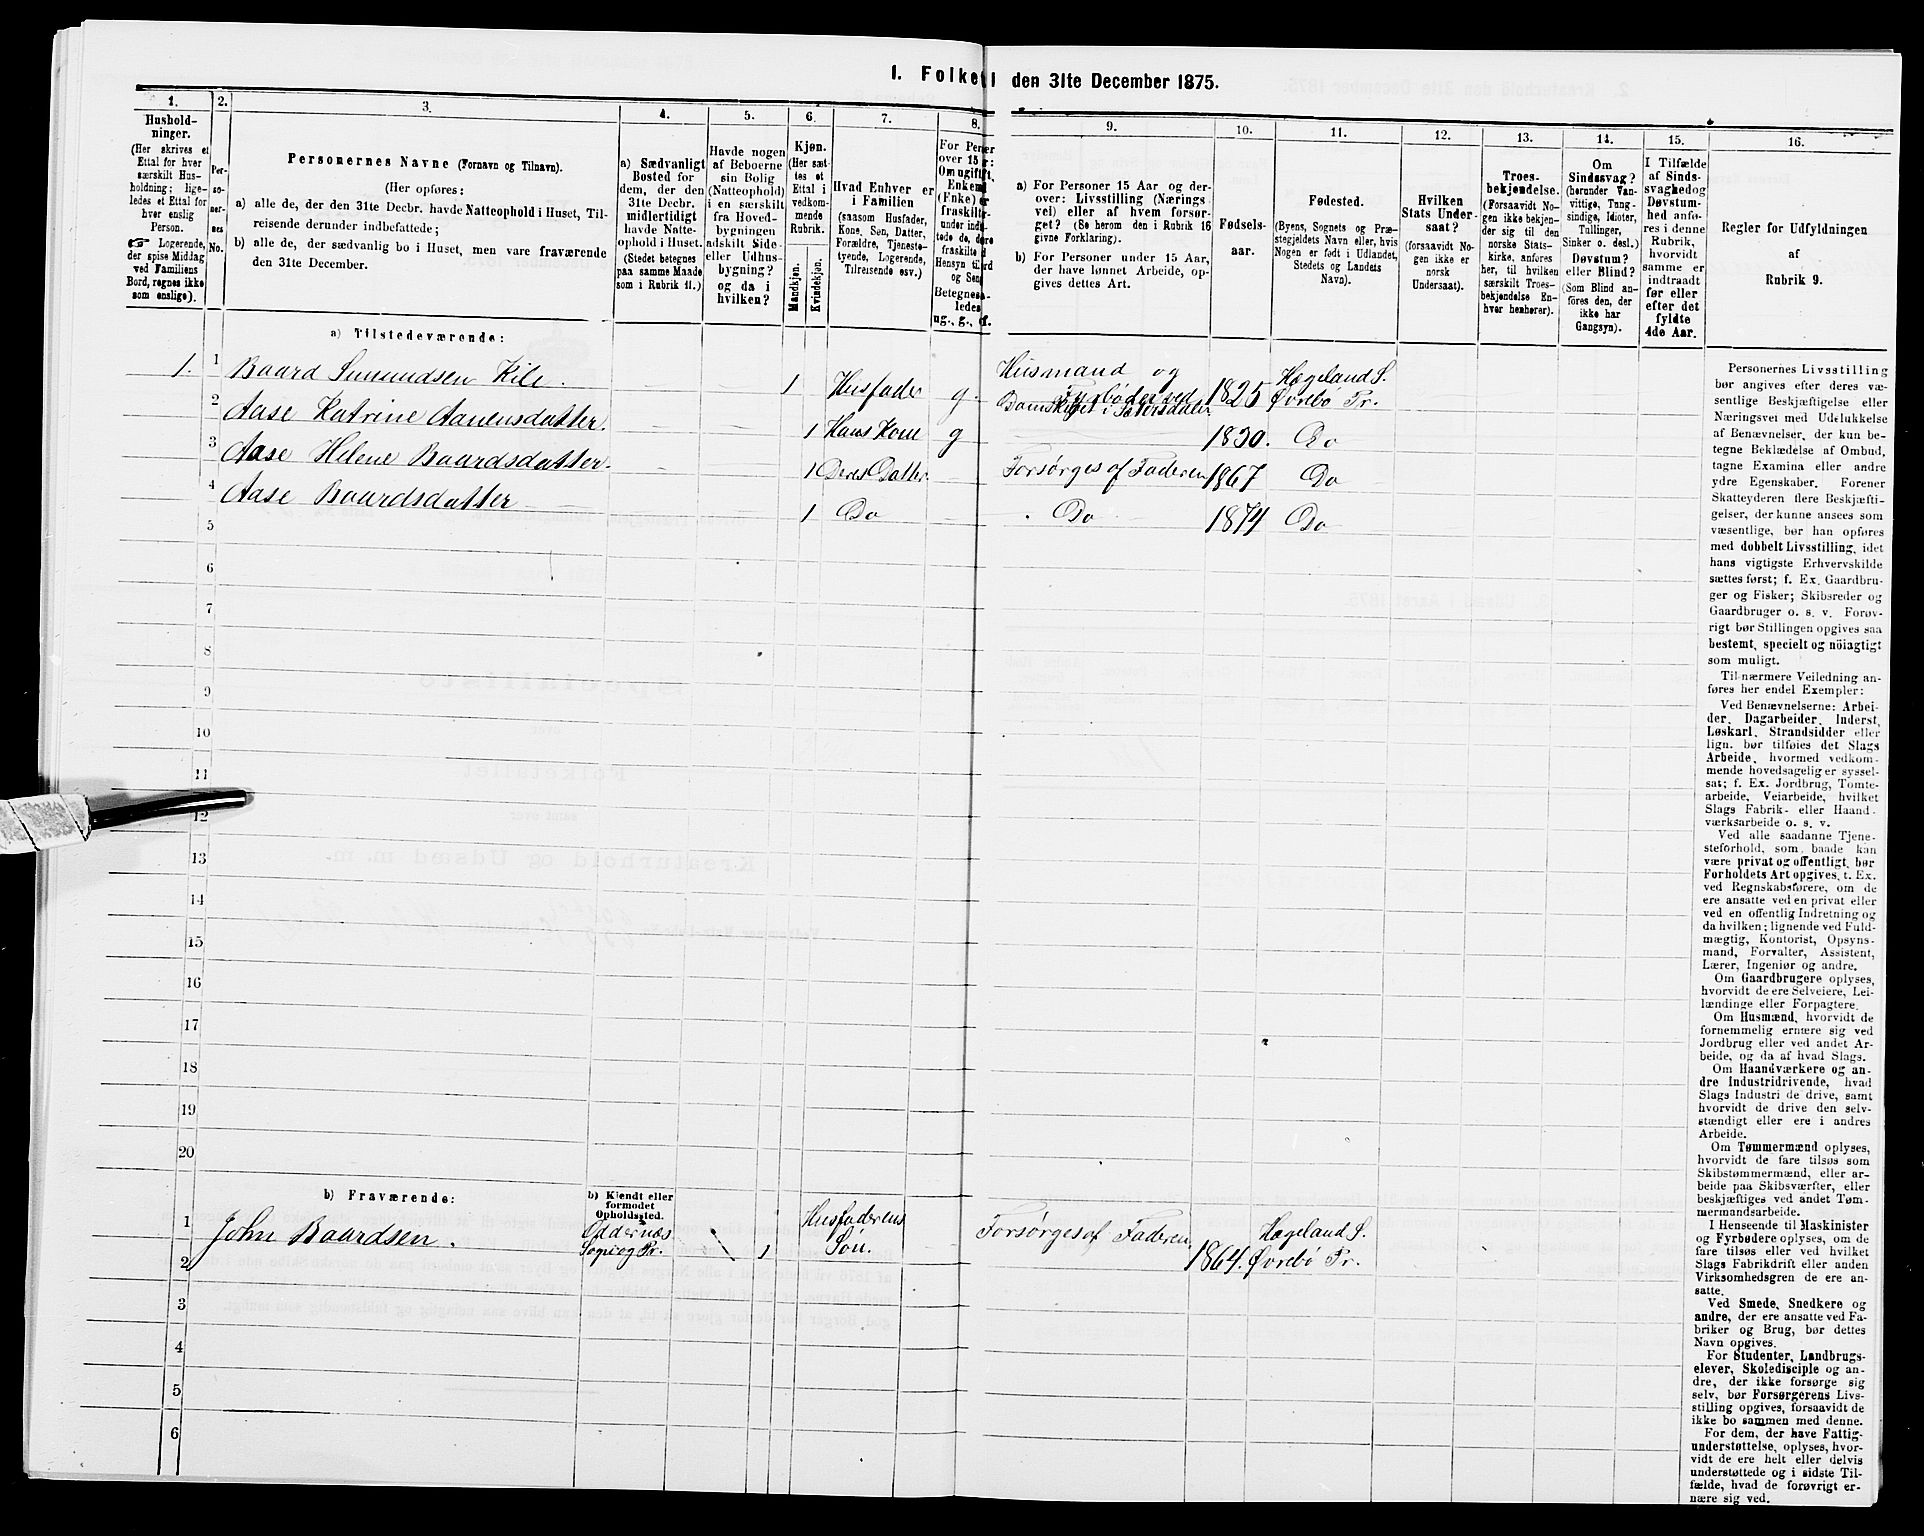 1. Folket den 31te December 1875.
1.
Hushold-
ninger.
(Her skrives et
Ettal for hver
særskilt Hus-
holdning; lige-
ledes et Ettal for
hver enslig
Person.
Logerende,
der spise Middag
ved Familiens
Bord, regnes ikke
som enslige).
2.
Per-
so-
ner-
nes
No.
3.
Personernes Navne (Fornavn og Tilnavn).
(Her opføres:
a) alle de, der den 31te Decbr. havde Natteophold i Huset, Til-
reisende derunder indbefattede;
b) alle de, der sædvanlig bo i Huset, men vare fraværende
den 31te December.
4.
a) Sædvanligt
Bosted for
dem, der den
31te Decbr.
midlertidigt
havde Natte-
ophold i Huset.
(Stedet betegnes
paa samme Maade
som i Rubrik 11.)
5.
Havde nogen
af Beboerne
sin Bolig
(Natteophold)
i en særskilt
fra Hoved-
bygningen
adskilt Side-
eller Udhus-
bygning?
og da i
hvilken?
6.
Kjøn.
(Her sæt-
tes et
Ettal i
vedkom-
mende
Rubrik.
Mandkjøn.
Kvindekjøn.
7.
Hvad Enhver er
i Familien
(saasom Husfader,
Kone, Søn, Datter,
Forældre, Tjeneste-
tyende, Logerende,
Tilreisende osv.)
8.
For Per er
over 15 r:
Om ugift,
Enkem
(Enke) er
fraskilt
Betegnes
ledes
ug., g.,
9.
a) For Personer 15 Aar og der-
over: Livsstilling (Nærings-
vei) eller af hvem forsør-
get? (Se herom den i Rubrik 16
givne Forklaring).
b) For Personer under 15 Aar,
der have lønnet Arbeide, op-
gives dettes Art.
10.
Fødsels-
aar.
11.
Fødested.
(Byens, Sognets og Præ-
stegjeldets Navn eller, hvis
Nogen er født i Udlandet,
Stedets og Landets
Navn).
12.
Hvilken
Stats Under-
saat?
(forsaavidt No-
gen ikke er
norsk
Undersaat).
13.
Troes-
bekjendelse.
(Forsaavidt No-
gen ikke bekjen-
der sig til den
norske Stats-
kirke, anføres
her, til hvilken
særskilt Troes-
bekjendelse En-
hver henhører).
14.
Om
Sindssvag?
(herunder Van-
vittige, Tung-
sindige, Idioter,
Tullinger,
Sinker o. desl.)
Døvstum?
eller Blind?
(Som Blind an-
føres den, der
ikke har
Gangsyn).
15.
I Tilfælde
af Sinds-
svaghed og
Døvstum-
hed anfø-
res i denne
Rubrik,
hvorvidt
samme er
indtraadt
før eller
efter det
fyldte
4de Aar.
16.
Regler for Udfyldningen
af
Rubrik 9.
a) Tilstedeværende:
1. 1 Baard Simundsen Kile. 1 Husfader g. Husmand og Fyrbøder ved Damskibet i Sætersdalen 1825 Hægeland S. Øvrebø Pr.
2 Aase Katrine Aanensdatter. 1 Hans Kone g 1830. Do
3 Aase Helene Baardsdatter. 1 Deres Datter Forsørges af Faderen 1867 Do
4 Aase Baardsdatter 1 Do Do 1874 Do
5
6
7
8
9
10
11
12
13
14
15
16
17
18
19
20
b) Fraværende:
b) Kjendt eller
formodet
Opholdssted.
1 John Baardsen. Oddernæs Sogn og Pr. 1 Husfaderens Søn. Forsørges af Faderen 1864. Hægeland S. Øvrebø Pr.
2
3
4
5
6
Personernes Livsstilling
bør angives efter deres væ-
sentlige Beskjæftigelse eller
Næringsvei med Udelukkelse
af Benævnelser, der kun be-
tegne Beklædelse af Ombud,
tagne Examina eller andre
ydre Egenskaber. Forener
Skatteyderen flere Beskjæfti-
gelser, der kunne ansees som
væsentlige, bør han opføres
med dobbelt Livsstilling, idet
hans vigtigste Erhvervskilde
sættes først; f. Ex. Gaardbru-
ger og Fisker; Skibsreder og
Gaardbruger o. s. v. Forøv-
rigt bør Stillingen opgives saa
bestemt, specielt og nöiagtigt
som muligt.
Til nærmere Veiledning an-
føres her endel Exempler:
Ved Benævnelserne: Arbei-
der, Dagarbeider, Inderst,
Løskarl, Strandsidder eller
lign. bør tilføies det Slags
Arbeide, hvormed vedkom-
mende hovedsagelig er syssel-
sat; f. Ex. Jordbrug, Tomte-
arbeide, Veiarbeide, hvilket
Slags Fabrik- eller Haand-
værksarbeide o. s. v.
Ved alle saadanne Tjene-
steforhold, som baade kan
være privat og offentligt, bør
Forholdets Art opgives, t. Ex.
ved Regnskabsførere, om de
ere ansatte ved en privat eller
ved en offentlig Indretning og
da hvilken; lignende ved Fuld-
mægtig, Kontorist, Opsyns-
mand, Forvalter, Assistent,
Lærer, Ingeniør og andre.
Om Gaardbrugere oplyses,
hvorvidt de ere Selveiere, Lei-
lændinge eller Forpagtere.
Om Husmænd, hvorvidt de
fornemmelig ernære sig ved
Jordbrug eller ved andet Ar-
beide, og da af hvad Slags.
Om Haandværkere og an-
dre Industridrivende, hvad
Slags Industri de drive, samt
hvorvidt de drive den selv-
stændigt eller ere i andres
Arbeide.
Om Tømmermænd oplyses,
hvorvidt de fare tilsøs som
Skibstømmermænd, eller ar-
beide paa Skibsværfter, eller
beskjæftiges ved andet Tøm-
mermandsarbeide.
I Henseende til Maskinister
og Fyrbødere oplyses, om de
fare tilsøs eller ved hvilket
Slags Fabrikdrift eller anden
Virksomhedsgren de ere an-
satte.
Ved Smede, Snedkere og
andre, der ere ansatte ved Fa-
briker og Brug, bør dettes
Navn opgives.
For Studenter, Landbrugs-
elever, Skoledisciple og an-
dre, der ikke forsørge sig
selv, bør Forsørgerens Livs-
stilling opgives, forsaavidt de
ikke bo sammen med denne.
For dem, der have Fattig-
understøttelse, oplyses, hvor-
vidt de ere helt eller delvis
understøttede og i sidste Til-
fælde, hvad de forøvrigt er-
nære sig ved.